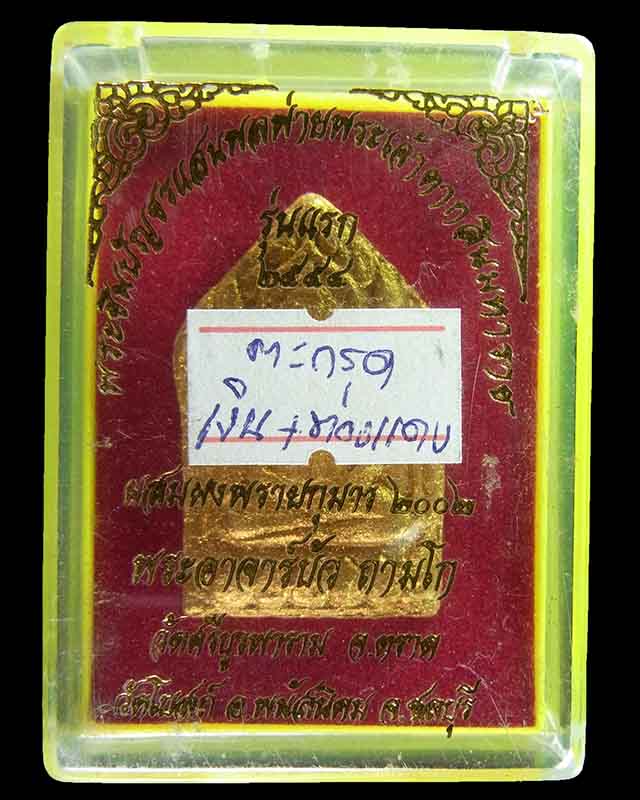 พระชินบัญชรแสนพลพ่ายพระเจ้าตากสินมหาราช
รุ่นแรก
๒๕๕๔
ตะกรุด
เงิน+ทองแดง
ผสมผงพรายกุมาร ๒๐๐๒
พระอาจารย์บัว ถามโก
วัดศรีบูรพาราม จ.ตราด
วัดโบสถ์ อ.พนัสนิคม จ.ชลบุรี